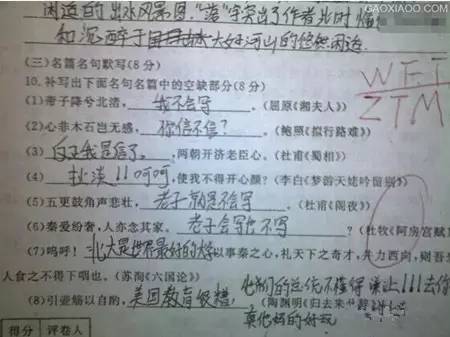 GAOXIAOO.COM
闲适的出水风景图."落"字突出了作者此时
和沉醉于大好河山的悠然闲适.
(三)名篇名句默写(8分)
10.补写出下面名句名篇中的空缺部分(8分)
WFT
ZTM
(1)帝子降兮北渚,我不会写。(屈原《湘夫人》)
(2)心非木石岂无感,你信不信?(鲍照《拟行路难》)
(3)反正我是信了。,两朝开济老臣心。(杜甫《蜀相》)
(4)扯淡!!呵呵,使我不得开心颜?(李白《梦游天姥吟留别》)
(5)五更鼓角声悲壮,老子就是不会写。(杜甫《阁夜》)
(6)秦爱纷奢,人亦念其家。老子会写也不写?(杜牧《阿房宫赋》
(7)呜呼!北大是世界最好的大学以事秦之心,礼天下之奇才,并力西向,则吾恐
人食之不得下咽也。(苏洵《六国论》)
(8)引壶觞以自酌,美国教育很糟,(陶渊明《归去来兮辞
真他妈的好玩
得分 评卷人